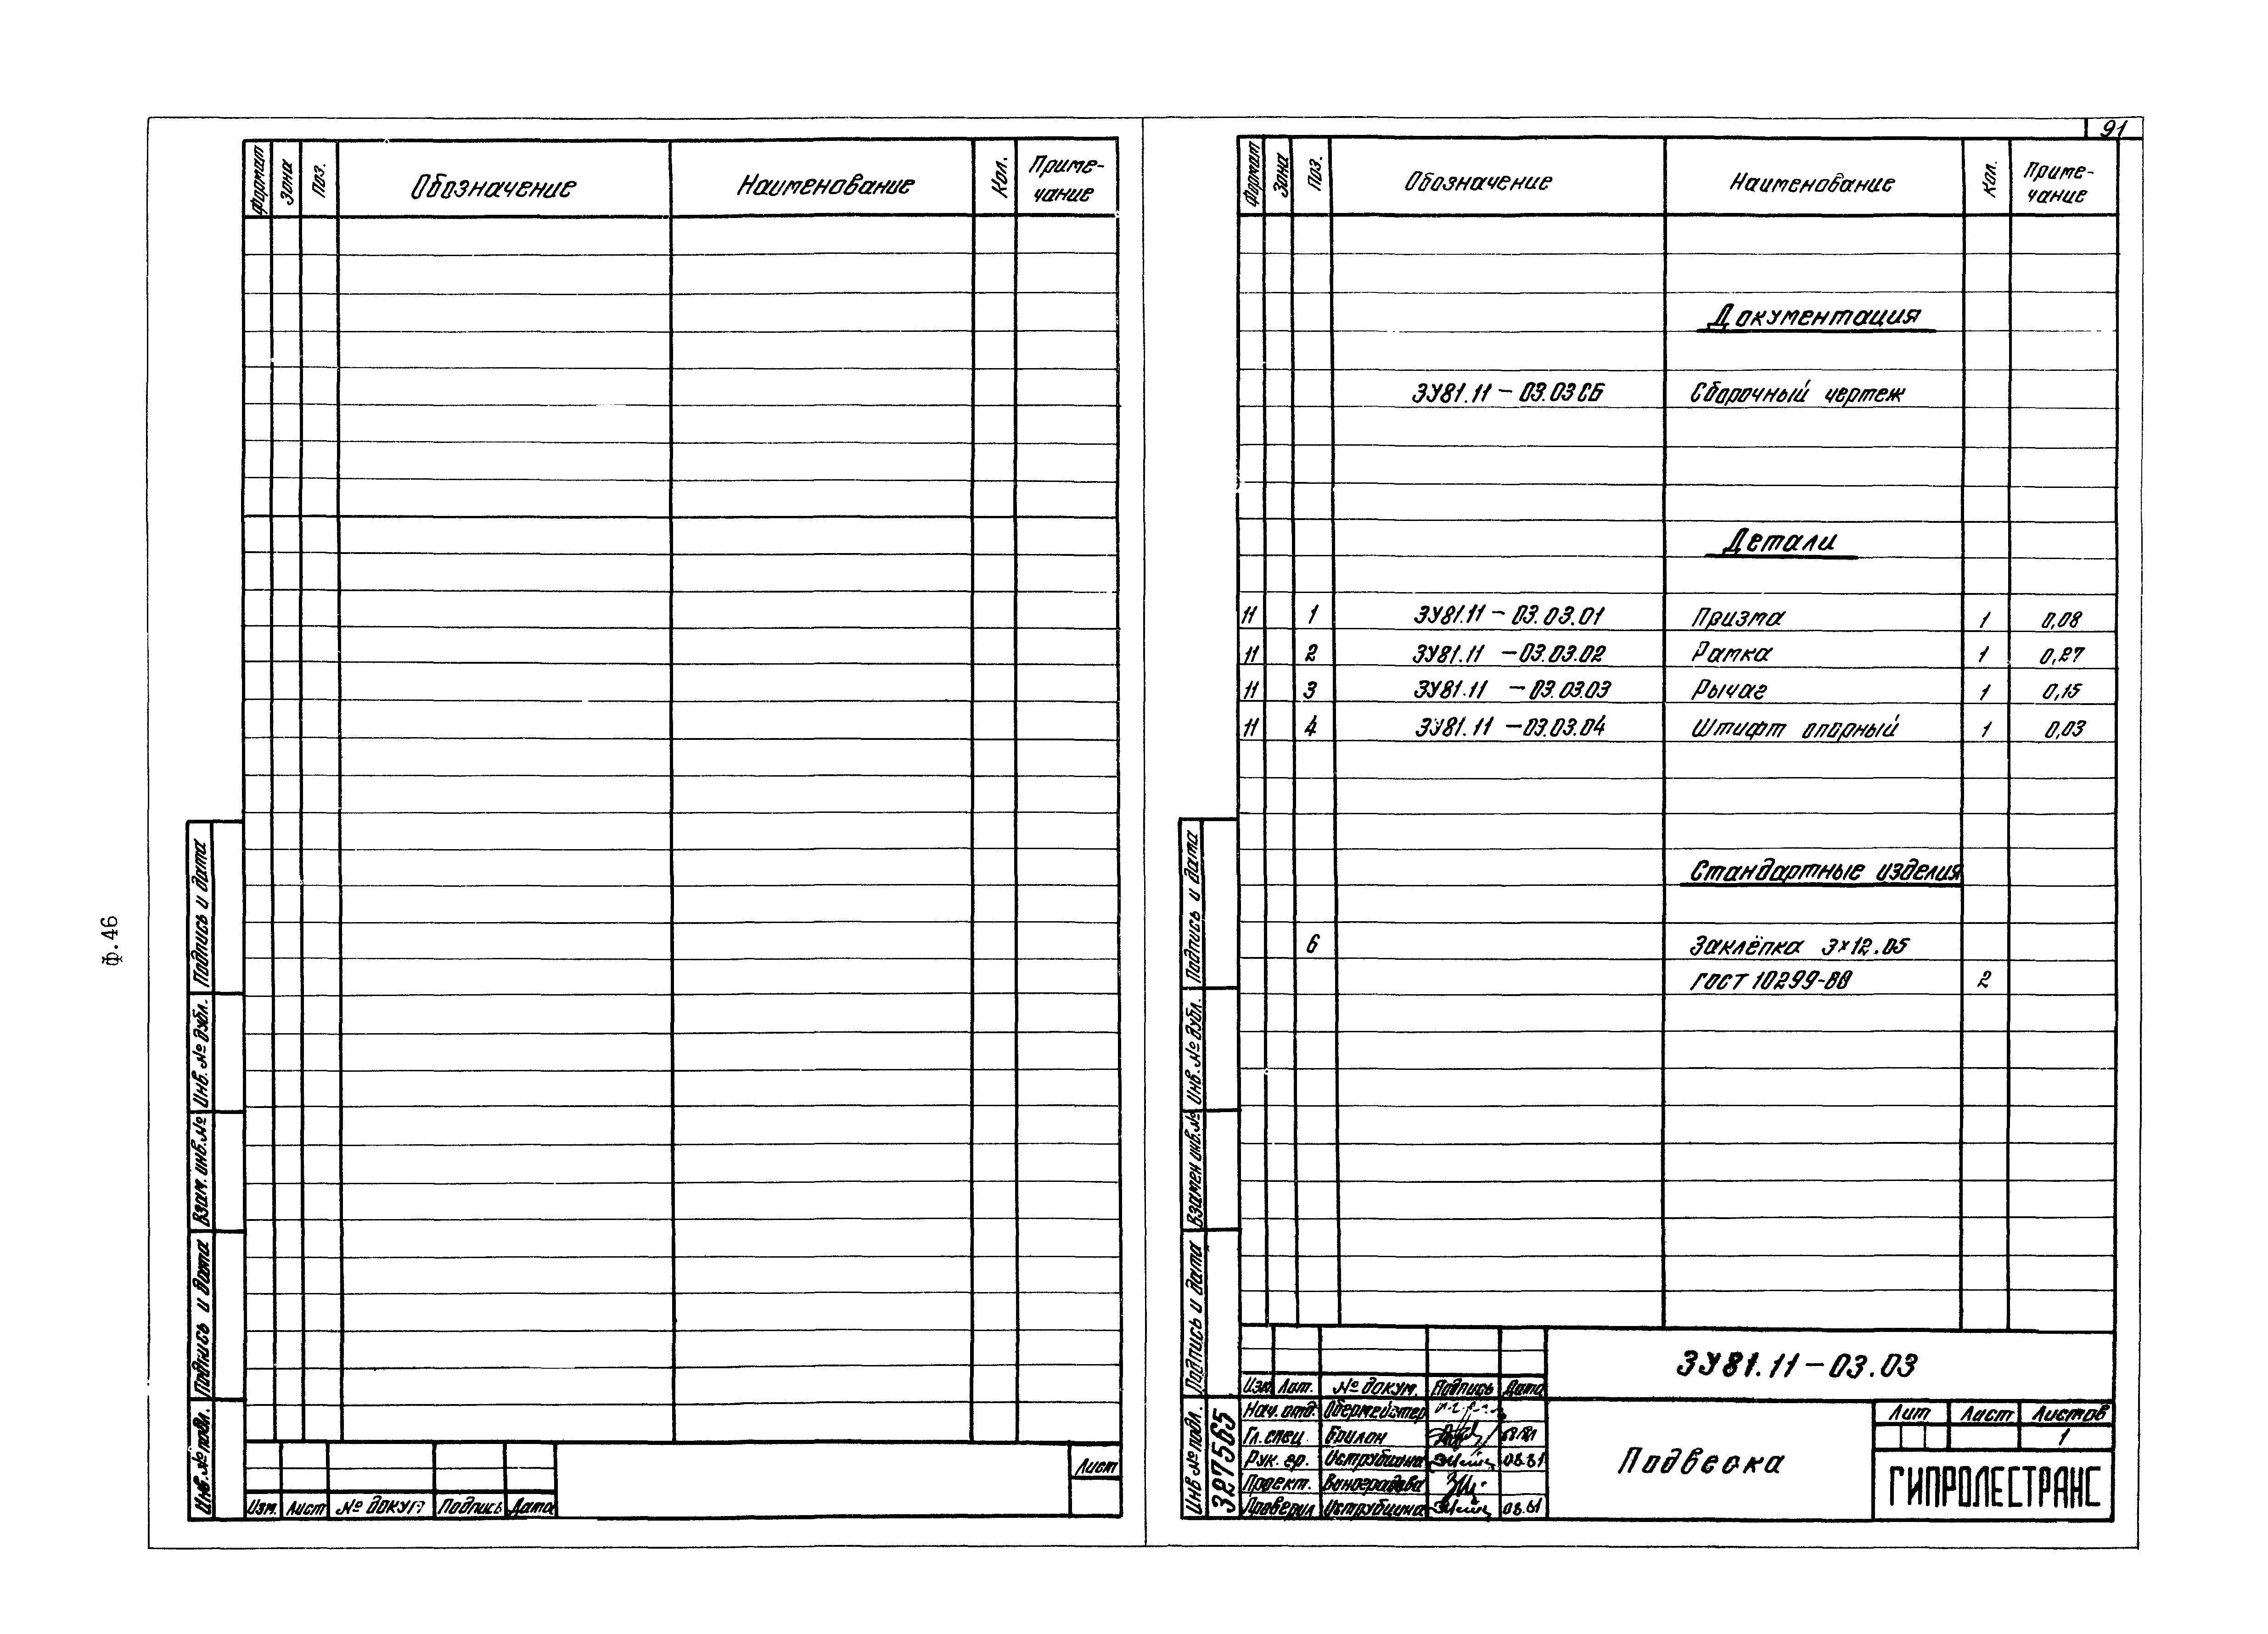 91
Ф.46
Формат Зона Поз. Обозначение Наименование Кол. Приме-
чание
Подпись и дата
Инв. № дубл.
Взам. инв. №
Подпись и дата
Инв. № подл.
Изм. Лист № докум Подпись Дата
Лист
Формат Зона Поз. Обозначение Наименование Кол. Приме-
чание
Документация
ЗУ81.11-03.03СБ Сборочный чертеж
Детали
11 1 ЗУ81.11-03.03.01 Призма 1 0,08
11 2 ЗУ81.11-03.03.02 Рамка 1 0,27
11 3 ЗУ81.11-03.03.03 Рычаг 1 0,15
11 4 ЗУ81.11-03.03.04 Штифт опорный 1 0,03
Стандартные изделия
6 Заклёпка 3×12.05
ГОСТ 10299-80 2
Подпись и дата
Инв. № дубл.
Взамен инв. №
Подпись и дата
Инв № подл.
327565
ЗУ81.11-03.03
Изм Лит. № докум. Подпись Дата
Нач. отд. Обермейстер
Гл. спец Брилон
Рук. гр. Иструбцина 08.81
Проект. Виноградова
Проверил Иструбцина 08.81
Подвеска
Лит Лист Листов
1
ГИПРОЛЕСТРАНС